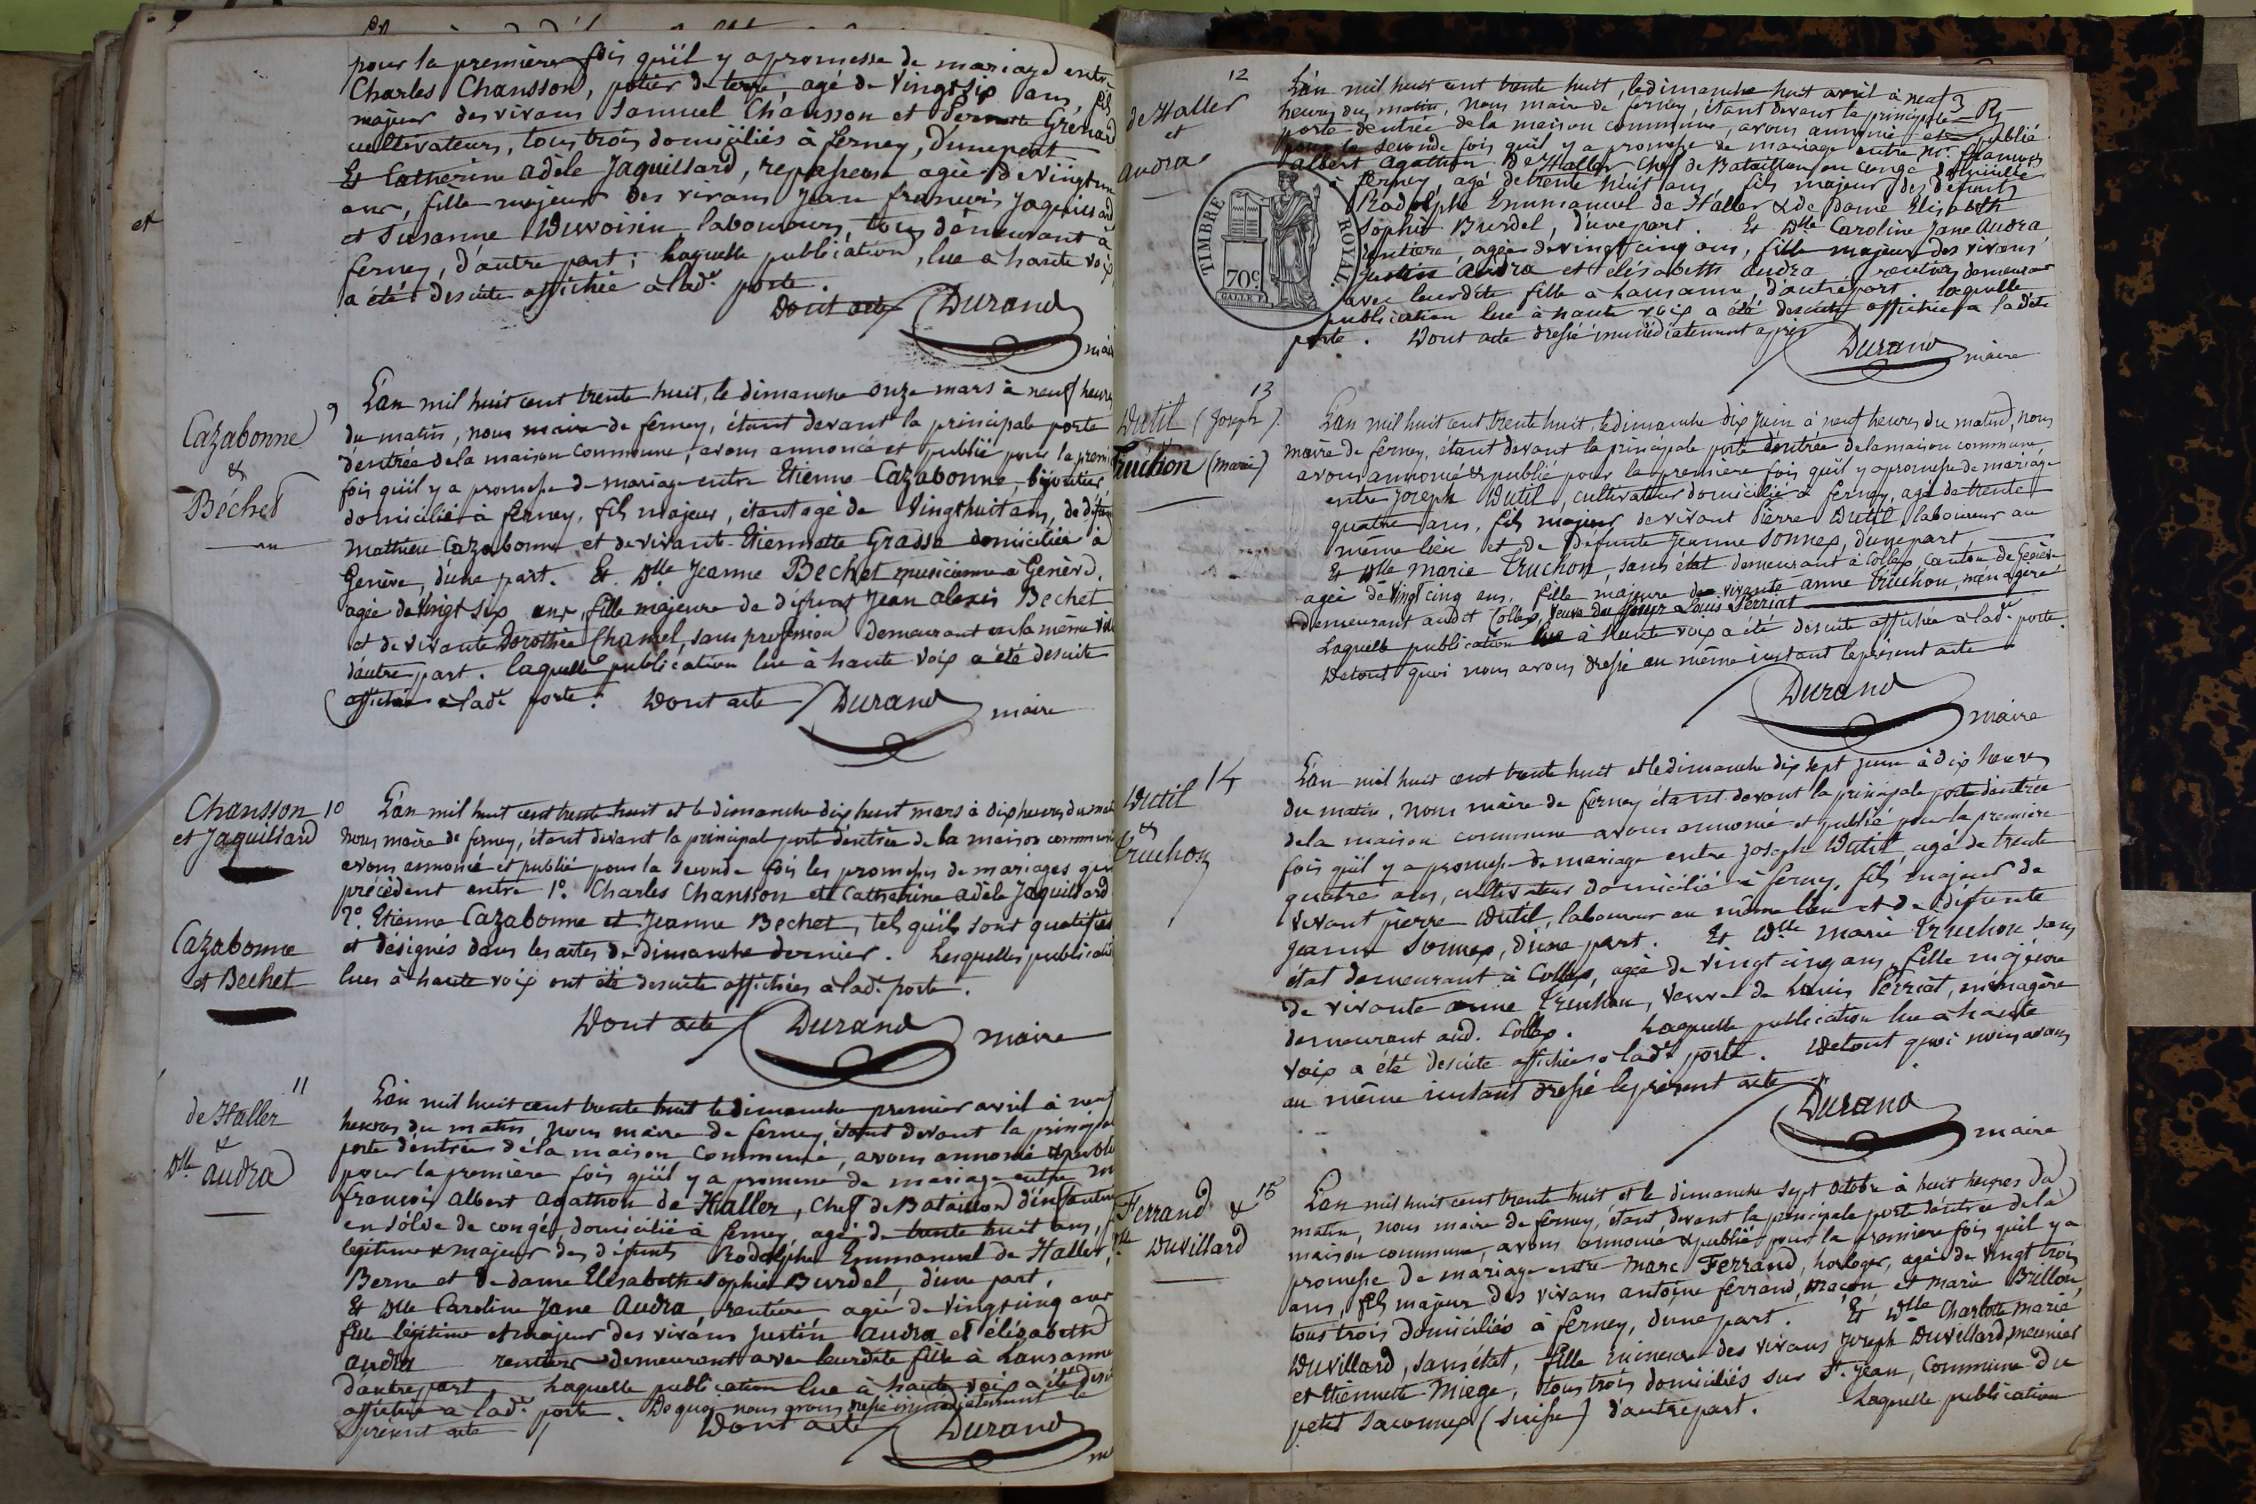 pour la première fois qu'il y a promesse de mariage entre
Charles Chansson, potier de terre, agé de vingt six ans, fils
majeur des vivans Samuel Chansson et Pernette Grénard
cultivateurs, tous trois domiciliés à ferney, d'une part
Et Catherine adèle Jaquillard, repasseuse agée de vingt un
ans, fille majeure des vivans Jean françois Jaquillard
et Susanne Duvoisin laboureurs, tous demeurant à
et
ferney, d'autre part; Laquelle publication, lue à haute voix
a été desuite affichée à lad.e porte.
Dont acte Durand
maire
Cazabonne
&
Béchet
9 L'an mil huit cent trente huit, le dimanche onze mars à neuf heures
du matin, nous maire de ferney, étant devant la principale porte
d'entrée dela maison commune, avons annoncé et publié pour la premi
fois qu'il y a promesse de mariage entre Etienne Cazabonne, bijoutier,
domicilié à ferney, fils majeur, étant agé de vingthuit ans, de défunt
Mathieu Cazabonne et de vivante Etiennette Grasse domiciliée à
Genève, d'une part. Et Dlle Jeanne Bechet musicienne à Genève,
agée de vingt six ans, fille majeure de défunt Jean alexis Bechet
et de vivante Dorothée Chamel, sans profession demeurant en la même vil
d'autre part. laquelle publication lue à haute voix a été desuite
affichée à lad.e porte. Dont acte Durand
maire
Chansson
et Jaquillard
10 L'an mil huit cent trente huit et le dimanche dix huit mars à dix heures du mat
nous maire de ferney, étant devant la principal porte d'entrée de la maison commune
avons annoncé et publié pour la seconde fois les promesses de mariages qui
précèdent entre 1º. Charles Chansson et Catherine adèle Jaquillard
Cazabonne
et Bechet
2º. Etienne Cazabonne et Jeanne Bechet, tel qu'ils sont qualifiés
et designés dans les actes de dimanche dernier. Lesquelles publicati
lues à haute voix ont été desuite affichées à lad.e porte.
Dont acte Durand maire
11
de Haller
&
Dlle audra
L'an mil huit cent trente huit le dimanche premier avril à neuf
heures du matin nous maire de ferney, étant devant la principal
porte d'entrée déla maison commune, avons annoncé & publié
pour la première fois qu'il y a promesse de mariage entre M
françois albert agathon de Haller, chef de Bataillon d'infanterie
en solde de congé, domicilié à ferney, agé de trente huit ans,
légitime & majeur des défunts Rodolphe Emmanuel de Haller,
Berne et de dame Elisabeth Sophie Burdel, d'une part,
Et Dlle Caroline Jane audra, rentière agée de vingt cinq ans
fille légitime et majeur des vivans Justin audra et élizabeth
audra rentiers demeurant avec leurdite fille à Lausanne
d'autre part. Laquelle publication lue à haute voix a été desui
affichée à lad.e porte. De quoi nous avons dressé immédiatement le
présent acte Dont acte Durand
12
de Haller
et
audra
L'an mil huit cent trente huit, le dimanche huit avril à neuf
heures du matin, nous maire de ferney, étant devant la principale
porte d'entrée dela maison commune, avons annoncé et publié
pour la seconde fois qu'il y a promesse de mariage entre Mr. françois
albert agathon de Haller chef de Bataillon en congé domicilié
à ferney, agé de trente huit ans, fils majeur des défunts
Rodolphe Emmanuel de Haller & de Dame Elisabeth
Sophie Burdel, d'une part. Et Dlle Caroline Jane audra
rentière, agée de vingt cinq ans, fille majeure des vivans
Justin audra et elisabeth audra rentiers demeurant
avec leurdite fille à Lausanne, d'autre part laquelle
publication lue à haute voix a été desuite affichée à ladite
porte. Dont acte dressé immédiatement après
Durand maire
TIMBRE ROYAL.
70c
13
Dutil (Joseph)
Truchon (Marie)
L'an mil huit cent trente huit, le dimanche dix juin à neuf heures du matin, nous
maire de ferney, étant devant la principale porte d'entrée dela maison commune
avons annoncé & publié pour la première fois qu'il y a promesse de mariage
entre Joseph Dutil, cultivateur domicilié à ferney, agé de trente
quatre ans, fils majeur de vivant Pierre Dutil, laboureur au
même lieu et de défunte Jeanne Sonnex, d'une part,
Et Dlle Marie Truchon, sans état demeurant à Collex, canton de Genève
agée de vingt cinq ans, fille majeure de vivante anne Truchon, ménagère
demeurant audit Collex, veuve de feu Louis Perriat
Laquelle publication lue à haute voix a été desuite affichée à lad.e porte.
Detout quoi nous avons dressé au même instant le présent acte
Durand
maire
14
Dutil
&
Truchon
L'an mil huit cent trente huit et le dimanche dix sept juin à dix heures
du matin, nous maire de ferney étant devant la principale porte d'entrée
dela maison commune avons annoncé et publié pour la première
fois qu'il y a promesse de mariage entre Joseph Dutil, agé de trente
quatre ans, cultivateur domicilié à ferney, fils majeur de
vivant pierre Dutil, laboureur au même lieu et de défunte
Jeanne Sonnex, d'une part. Et Dlle Marie Truchon sans
état demeurant à Collex, agée de vingt cinq ans, fille majeure
de vivante anne Truchon, veuve de Louis Perriat, ménagère
demeurant aud. Collex. Laquelle publication lue à haute
voix a été desuite affichée à lad.e porte. Detout quoi nous avons
au même instant dressé le présent acte
Durand
maire
15
Ferrand &
Dlle Duvillard
L'an mil huit cent trente huit et le dimanche sept octobre à huit heures du
matin, nous maire de ferney, étant devant la principale porte d'entrée de la
maison commune, avons annoncé & publié pour la première fois qu'il y a
promesse de mariage entre Marc Ferrand, horloger, agé de vingt trois
ans, fils majeur des vivans antoine ferrand, maçon et Marie Brillon,
tous trois domiciliés à ferney, d'une part. Et Dlle Charlotte Marie
Duvillard, sans état, fille mineure des vivans Joseph Duvillard, meunier
et Etiennette Miège, tous trois domiciliés sur St. Jean, Commune du
petit Saconnex (Suisse) d'autre part. Laquelle publication